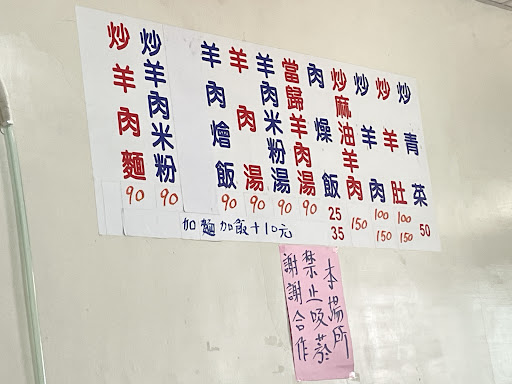 炒青菜 50
炒羊肚 100 150
炒羊肉 100 150
炒麻油羊肉 150
肉燥飯 25 35
當歸羊肉湯 90
羊肉米粉湯 90
羊肉湯 90
羊肉燴飯 90
炒羊肉米粉 90
炒羊肉麵 90
加麵加飯+10元
本場所
禁止吸菸
謝謝合作